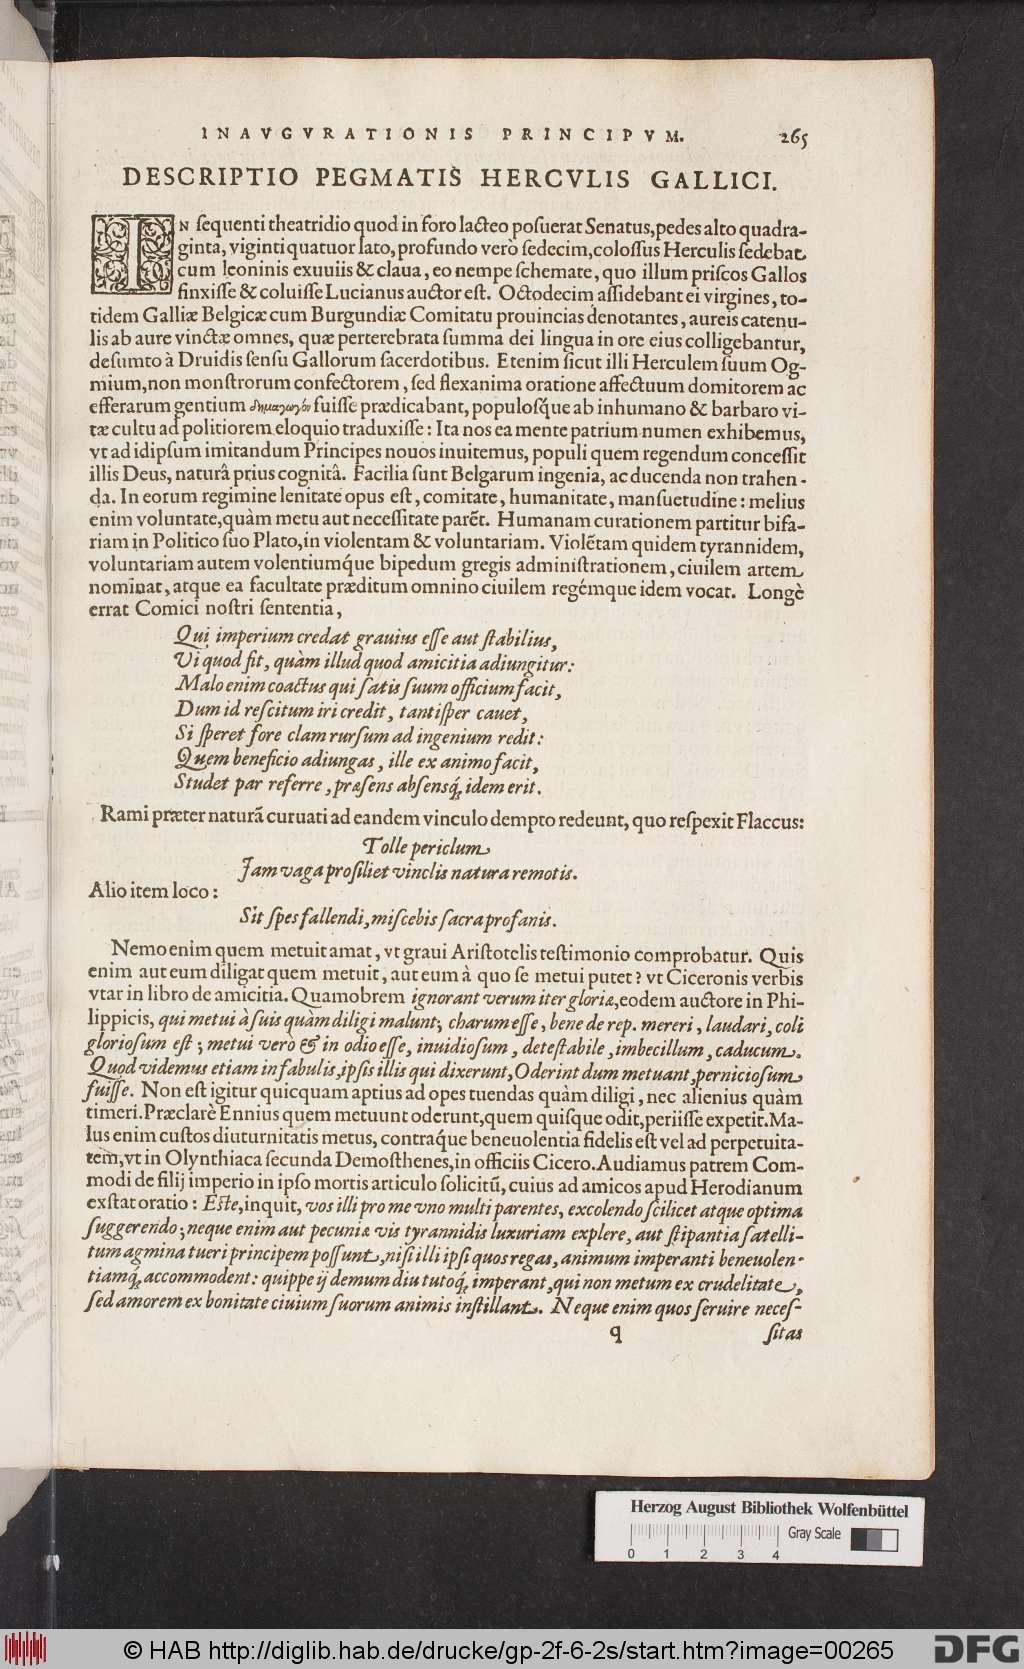 INAVGVRATIONIS PRINCIPVM. 265
DESCRIPTIO PEGMATIS HERCVLIS GALLICI.
IN ſequenti theatridio quod in foro lacteo poſuerat Senatus, pedes alto quadra-
ginta, viginti quatuor lato, profundo verò ſedecim, coloſſus Herculis ſedebat
cum leoninis exuuiis & claua, eo nempe ſchemate, quo illum priſcos Gallos
finxiſſe & coluiſſe Lucianus auctor eſt. Octodecim aſſidebant ei virgines, to-
tidem Galliæ Belgicæ cum Burgundiæ Comitatu prouincias denotantes, aureis catenu-
lis ab aure vinctæ omnes, quæ perterebrata ſumma dei lingua in ore eius colligebantur,
deſumto à Druidis ſenſu Gallorum ſacerdotibus. Etenim ſicut illi Herculem ſuum Og-
mium, non monſtrorum confectorem, ſed flexanima oratione affectuum domitorem ac
efferarum gentium δημαγωγόν fuiſſe prædicabant, populoſq́ue ab inhumano & barbaro vi-
tæ cultu ad politiorem eloquio traduxiſſe: Ita nos ea mente patrium numen exhibemus,
vt ad idipſum imitandum Principes nouos inuitemus, populi quem regendum conceſſit
illis Deus, naturâ prius cognitâ. Facilia ſunt Belgarum ingenia, ac ducenda non trahen-
da. In eorum regimine lenitate opus eſt, comitate, humanitate, manſuetudine: melius
enim voluntate, quàm metu aut neceſſitate parēt. Humanam curationem partitur bifa-
riam in Politico ſuo Plato, in violentam & voluntariam. Violētam quidem tyrannidem,
voluntariam autem volentiumq́ue bipedum gregis adminiſtrationem, ciuilem artem
nominat, atque ea facultate præditum omnino ciuilem regémque idem vocat. Longè
errat Comici noſtri ſententia,
Qui imperium credat grauius eſſe aut ſtabilius,
Vi quod fit, quàm illud quod amicitia adiungitur:
Malo enim coactus qui ſatis ſuum officium facit,
Dum id reſcitum iri credit, tantiſper cauet,
Si ſperet fore clam rurſum ad ingenium redit:
Quem beneficio adiungas, ille ex animo facit,
Studet par referre, præſens abſensq́; idem erit.
Rami præter naturā curuati ad eandem vinculo dempto redeunt, quo reſpexit Flaccus:
Tolle periclum
Jam vaga proſiliet vinclis natura remotis.
Alio item loco:
Sit ſpes fallendi, miſcebis ſacra profanis.
Nemo enim quem metuit amat, vt graui Ariſtotelis teſtimonio comprobatur. Quis
enim aut eum diligat quem metuit, aut eum à quo ſe metui putet? vt Ciceronis verbis
vtar in libro de amicitia. Quamobrem ignorant verum iter gloriæ, eodem auctore in Phi-
lippicis, qui metui à ſuis quàm diligi malunt; charum eſſe, bene de rep. mereri, laudari, coli
glorioſum eſt; metui verò & in odio eſſe, inuidioſum, deteſtabile, imbecillum, caducum.
Quod videmus etiam in fabulis, ipſis illis qui dixerunt, Oderint dum metuant, pernicioſum
fuiſſe. Non eſt igitur quicquam aptius ad opes tuendas quàm diligi, nec alienius quàm
timeri. Præclarè Ennius quem metuunt oderunt, quem quiſque odit, periiſſe expetit. Ma-
lus enim cuſtos diuturnitatis metus, contraq́ue beneuolentia fidelis eſt vel ad perpetuita-
tem, vt in Olynthiaca ſecunda Demoſthenes, in officiis Cicero. Audiamus patrem Com-
modi de filij imperio in ipſo mortis articulo ſolicitū, cuius ad amicos apud Herodianum
exſtat oratio: Eſte, inquit, vos illi pro me vno multi parentes, excolendo ſcilicet atque optima
ſuggerendo; neque enim aut pecuniæ vis tyrannidis luxuriam explere, aut ſtipantia ſatelli-
tum agmina tueri principem poſſunt, niſi illi ipſi quos regas, animum imperanti beneuolen-
tiamq́; accommodent: quippe ij demum diu tutoq́; imperant, qui non metum ex crudelitate,
ſed amorem ex bonitate ciuium ſuorum animis inſtillant. Neque enim quos ſeruire neceſ-
q ſitas
Herzog August Bibliothek Wolfenbüttel
Gray Scale
0 1 2 3 4
© HAB http://diglib.hab.de/drucke/gp-2f-6-2s/start.htm?image=00265 DFG